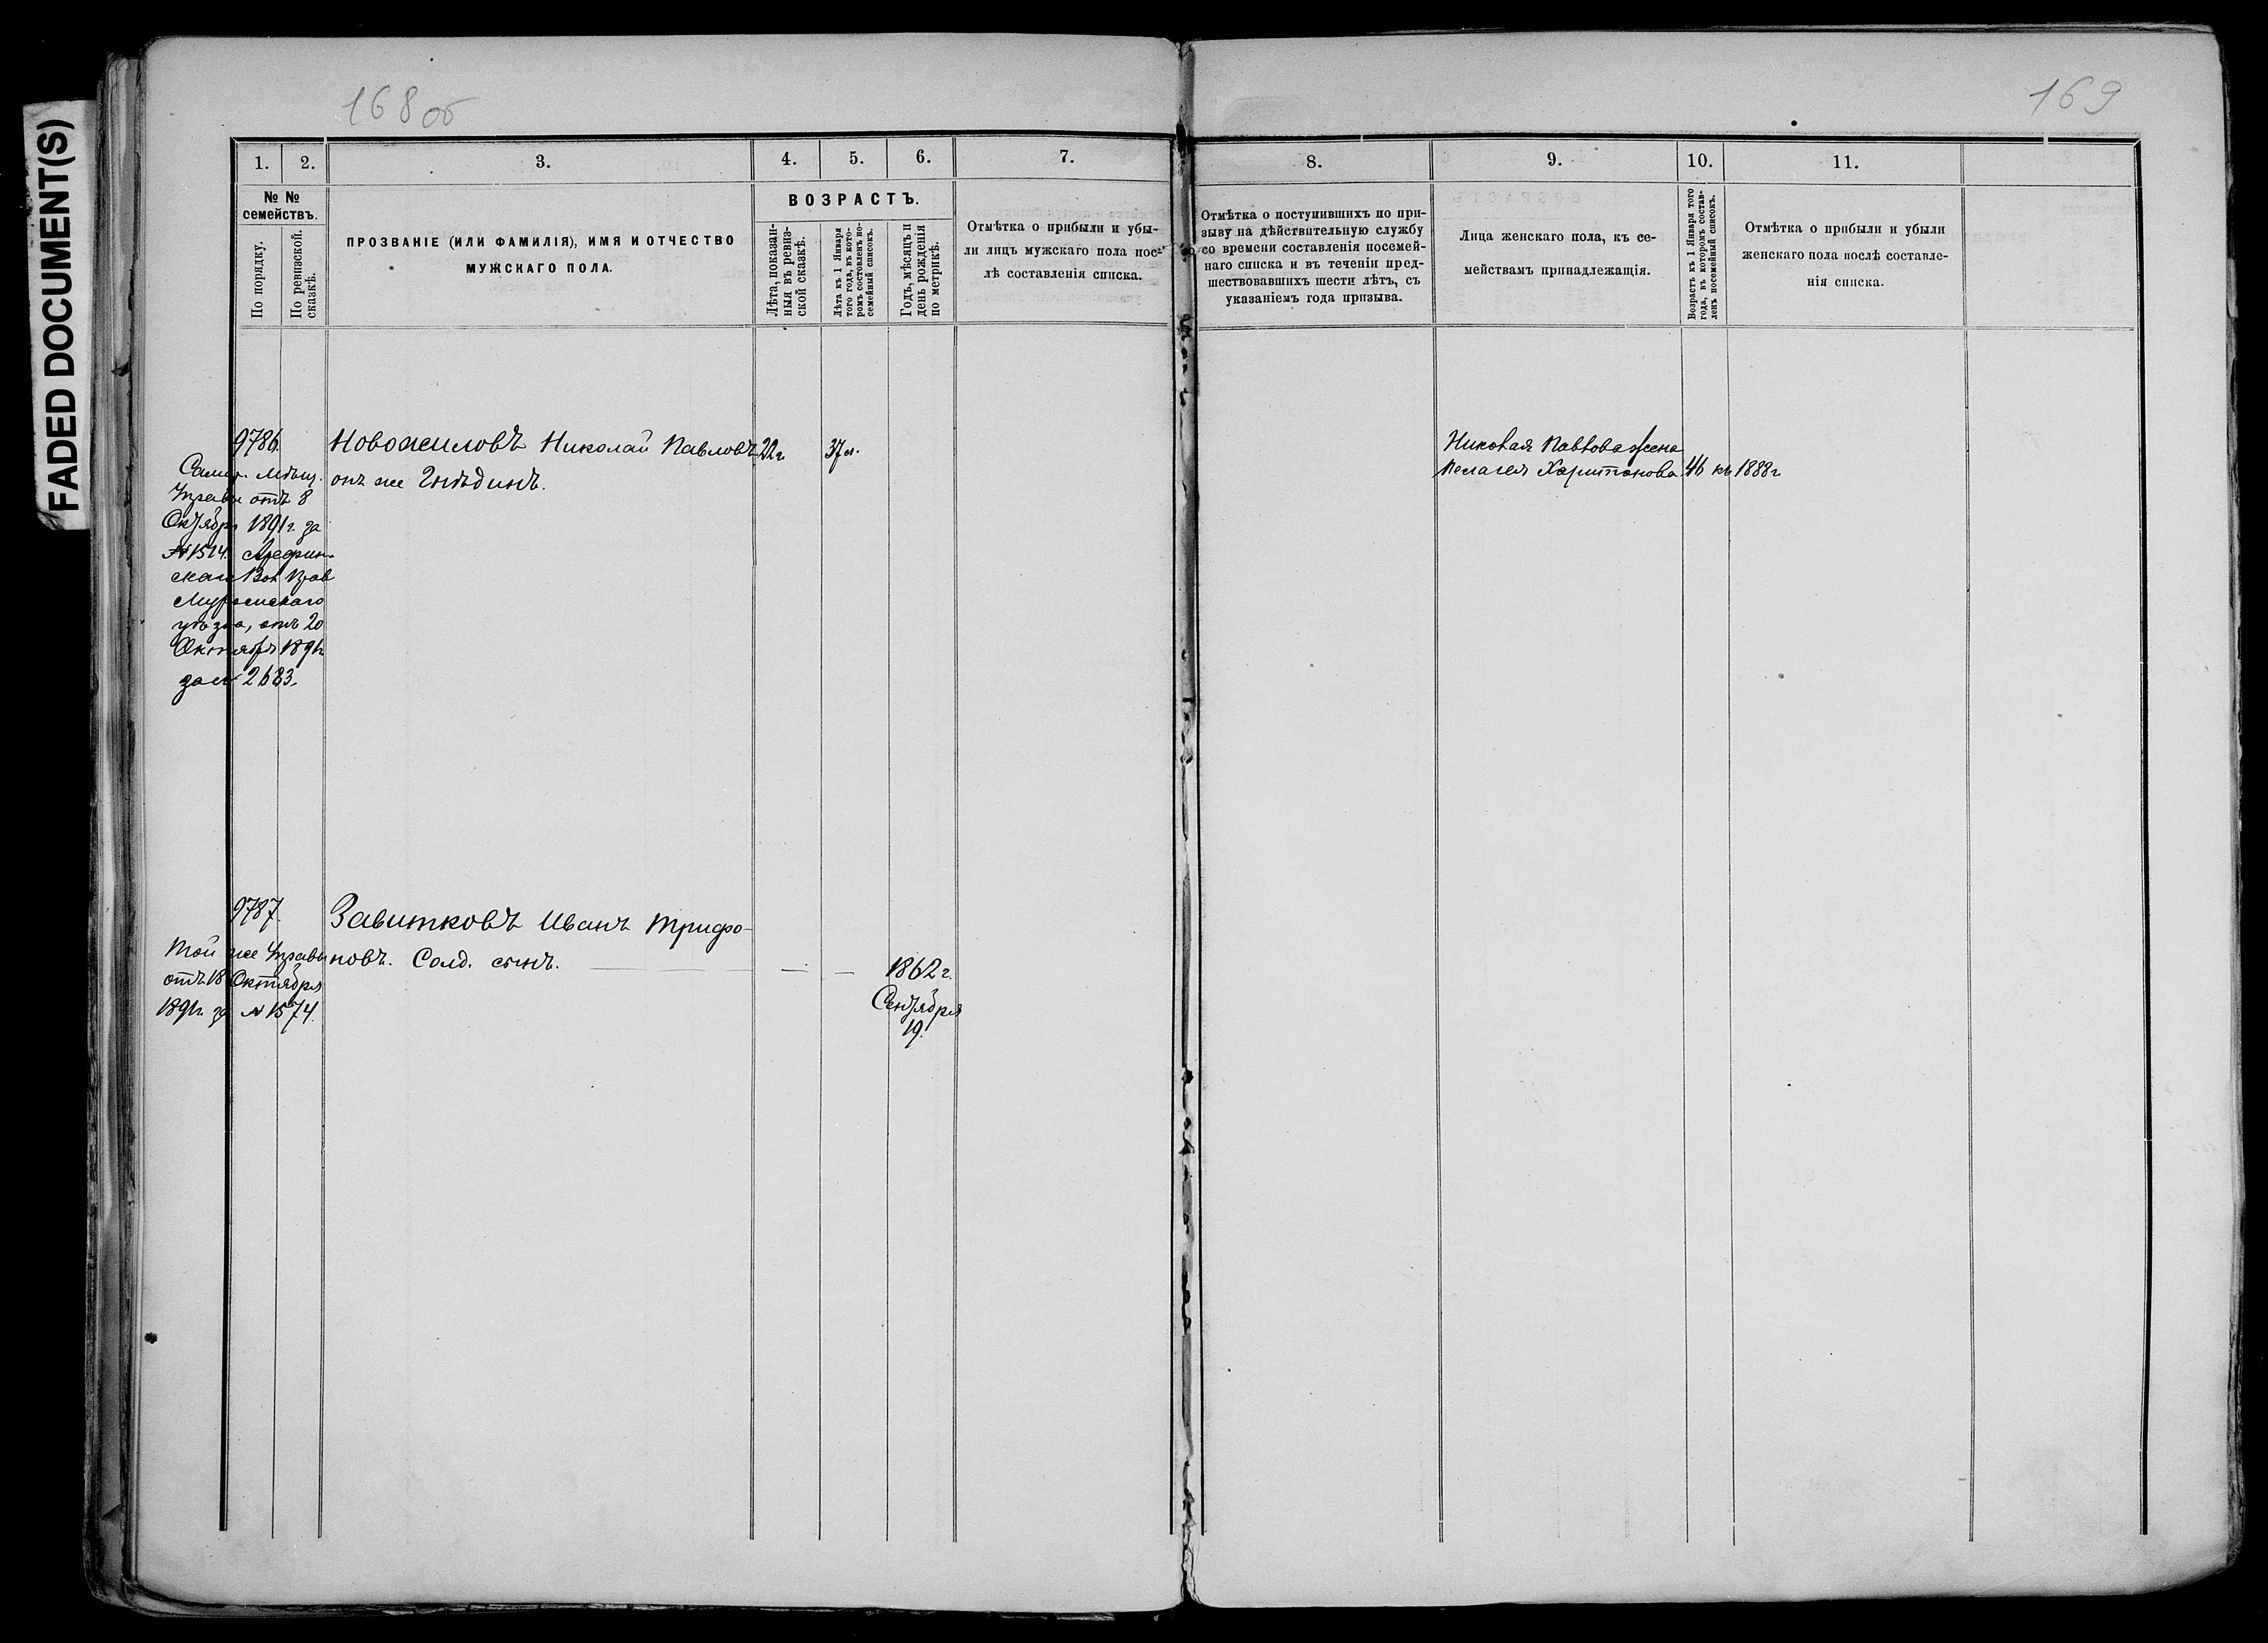 FADED DOCUMENT(S)
168об
169
1. 2. 3. 4. 5. 6. 7. 8. 9. 10. 11.
№ №
семействъ.
По порядку.
По ревизской
сказкѣ.
ПРОЗВАНІЕ (ИЛИ ФАМИЛІЯ), ИМЯ И ОТЧЕСТВО
МУЖСКАГО ПОЛА.
ВОЗРАСТЪ.
Лѣта, показан-
ныя въ ревиз-
ской сказкѣ.
Лѣта къ 1 Января
того года, въ кото-
ромъ составленъ по-
семейный списокъ.
Годъ, мѣсяцъ и
день рожденія
по метрикѣ.
Отмѣтка о прибыли и убы-
ли лицъ мужскаго пола пос-
лѣ составленія списка.
Отмѣтка о поступившихъ по при-
зыву на дѣйствительную службу
со времени составленія посемей-
наго списка и въ теченіи пред-
шествовавшихъ шести лѣтъ, съ
указаніемъ года призыва.
Лица женскаго пола, къ се-
мействамъ принадлежащія.
Возрастъ къ 1 Января того
года, въ которомъ состав-
ленъ посемейный списокъ.
Отмѣтка о прибыли и убыли
женскаго пола послѣ составле-
нія списка.
9786
Самар. Мѣщ.
Управы отъ 8
Октября 1891г. за
№1514. Арефин-
скаго Вол Прав
Муромскаго
уѣзда, отъ 20
Октября 1891г
за № 2683.
Новожиловъ Николай Павловъ 22г 37л.
онъ же Гнѣдинъ.
Николая Павлова жена
Пелагея Харитонова 46 къ 1888г
9787.
Той же Управы
отъ 18 Октября
1891г. за №1574.
Завитковъ Иванъ Трифо-
новъ. Солд. сынъ. — — — 1862г.
Сентября
19.